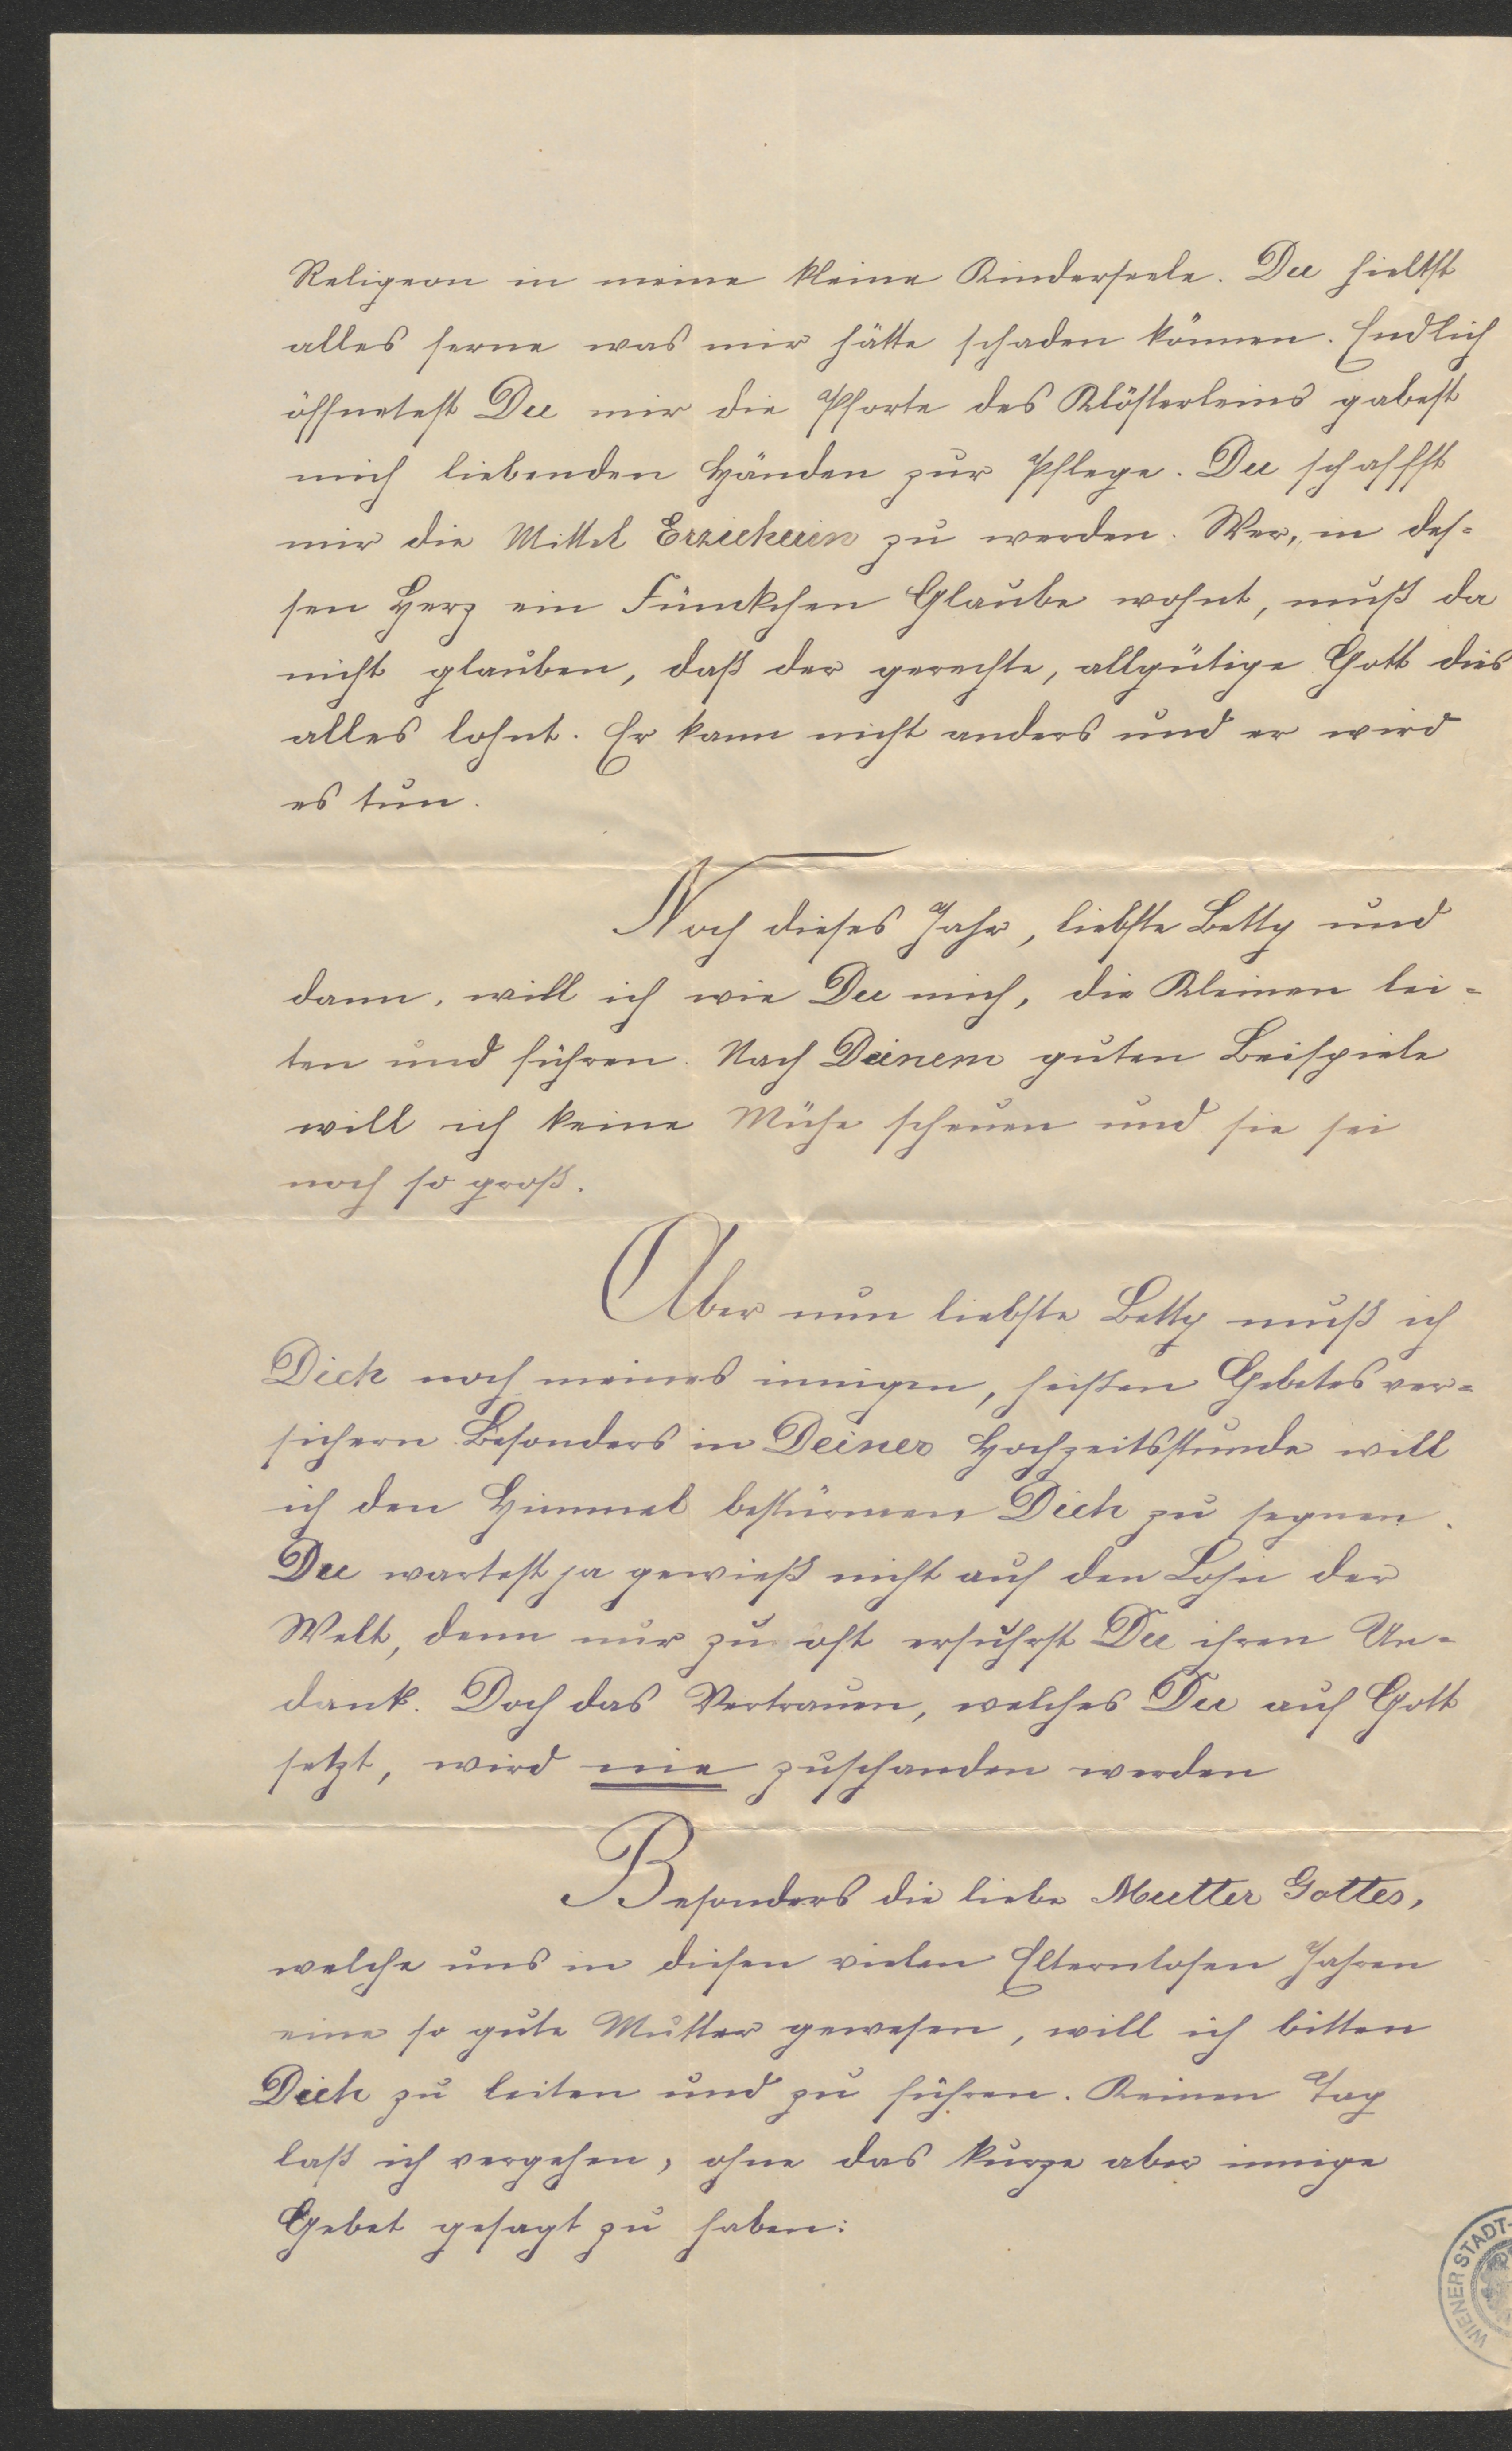 Religeon in meine kleine Kinderseele. Du hieltst
alles ferne was mir hätte schaden können. Endlich
öffnetest Du mir die Pforte des Klösterleins gabest
mich liebenden Händen zur Pflege. Du schaffst
mir die Mittel Erzieherin zu werden. Wer, in des-
sen Herz ein Fünckchen Glaube wohnt, muß da
nicht glauben, daß der gerechte, allgütige Gott dies
alles lohnt. Er kann nicht anders und er wird
es tun.
Noch dieses Jahr, liebste Betty und
dann, will ich wie Du mich, die Kleinen lei-
ten und führen. Nach Deinem guten Beispiele
will ich keine Mühe scheuen und sie sei
noch so groß.
Aber nun liebste Betty muß ich
Dich noch meines innigen, heißen Gebetes ver-
sichern. Besonders in Deiner Hochzeitsstunde will
ich den Himmel bestürmen Dich zu segnen.
Du wartest ja gewieß nicht auf den Lohn der
Welt, denn nur zu oft erfuhrst Du ihren Un-
dank. Doch das Vertrauen, welches Du auf Gott
setzt, wird nie zuschanden werden
Besonders die liebe Mutter Gottes,
welche uns in diesen vielen Elternlosen Jahren
eine so gute Mutter gewesen, will ich bitten
Dich zu leiten und zu führen. Keinen Tag
laß ich vergehen, ohne das kurze aber innige
Gebet gesagt zu haben:
WIENER STADT-